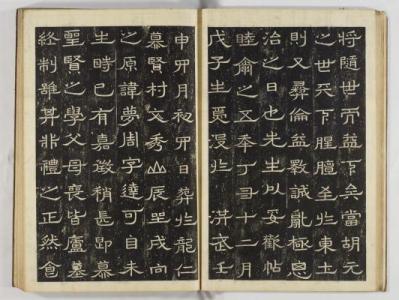 將隨世而益下矣當胡元
之世天下腥膻至於東土
則又彝倫益斁誠亂極思
治之日也先生以妥懽帖
睦爾之五年丁丑十二月
戊子生焉沒於洪武壬
申四月初四日葬於龍仁
慕賢村文秀山辰坐戌向
之原諱夢周字達可自未
生時已有嘉徵稍長即慕
聖賢之學父母喪皆廬墓
終制雖其非禮之正然食